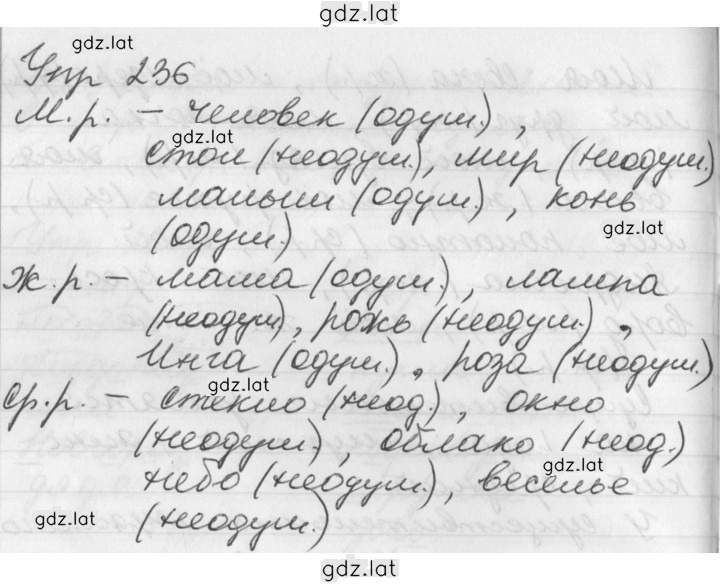 gdz.lat
gdz.lat
Упр 236
м.р. – человек (одуш.),
gdz.lat
стол (неодуш.), мир (неодуш.)
малыш (одуш.), конь
(одуш.)
gdz.lat
ж.р. – мама (одуш.), лампа
(неодуш), рожь (неодуш.),
Инга (одуш.), роза (неодуш.)
gdz.lat
ср.р. – стекло (неод.), окно
(неодуш.), облако (неод.)
gdz.lat
небо (неодуш.), веселье
gdz.lat
(неодуш.)
gdz.lat